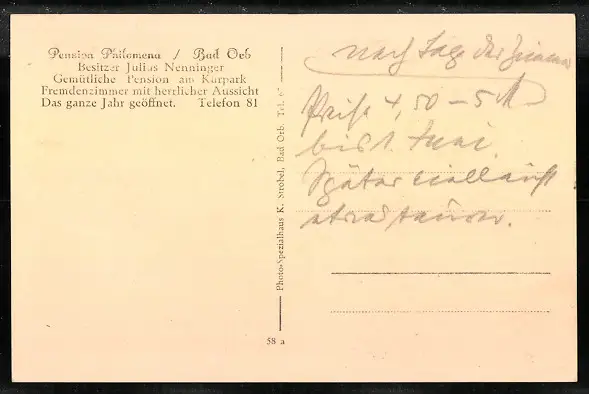 Pension Philomena / Bad Orb
Besitzer Julius Nenninger
Gemütliche Pension am Kurpark
Fremdenzimmer mit herrlicher Aussicht
Das ganze Jahr geöffnet. Telefon 81
Photo-Spezialhaus K. Strobel, Bad Orb. Tel.
58 a
nach Lage der Zimmer
Preise 4,50 – 5 M
bis 1. Juni.
Später vielleicht
etwas teurer.